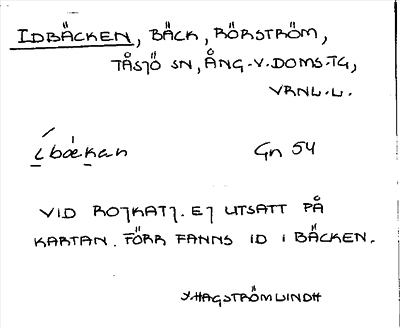 IDBÄCKEN, BÄCK, RÖRSTRÖM,
TÅSJÖ SN, ÅNG.V.DOMS.TG,
VRNL.L.
íbœkan Gn 54
VID ROJKATJ. EJ UTSATT PÅ
KARTAN. FÖRR FANNS ID I BÄCKEN.
Y.HAGSTRÖM LINDH